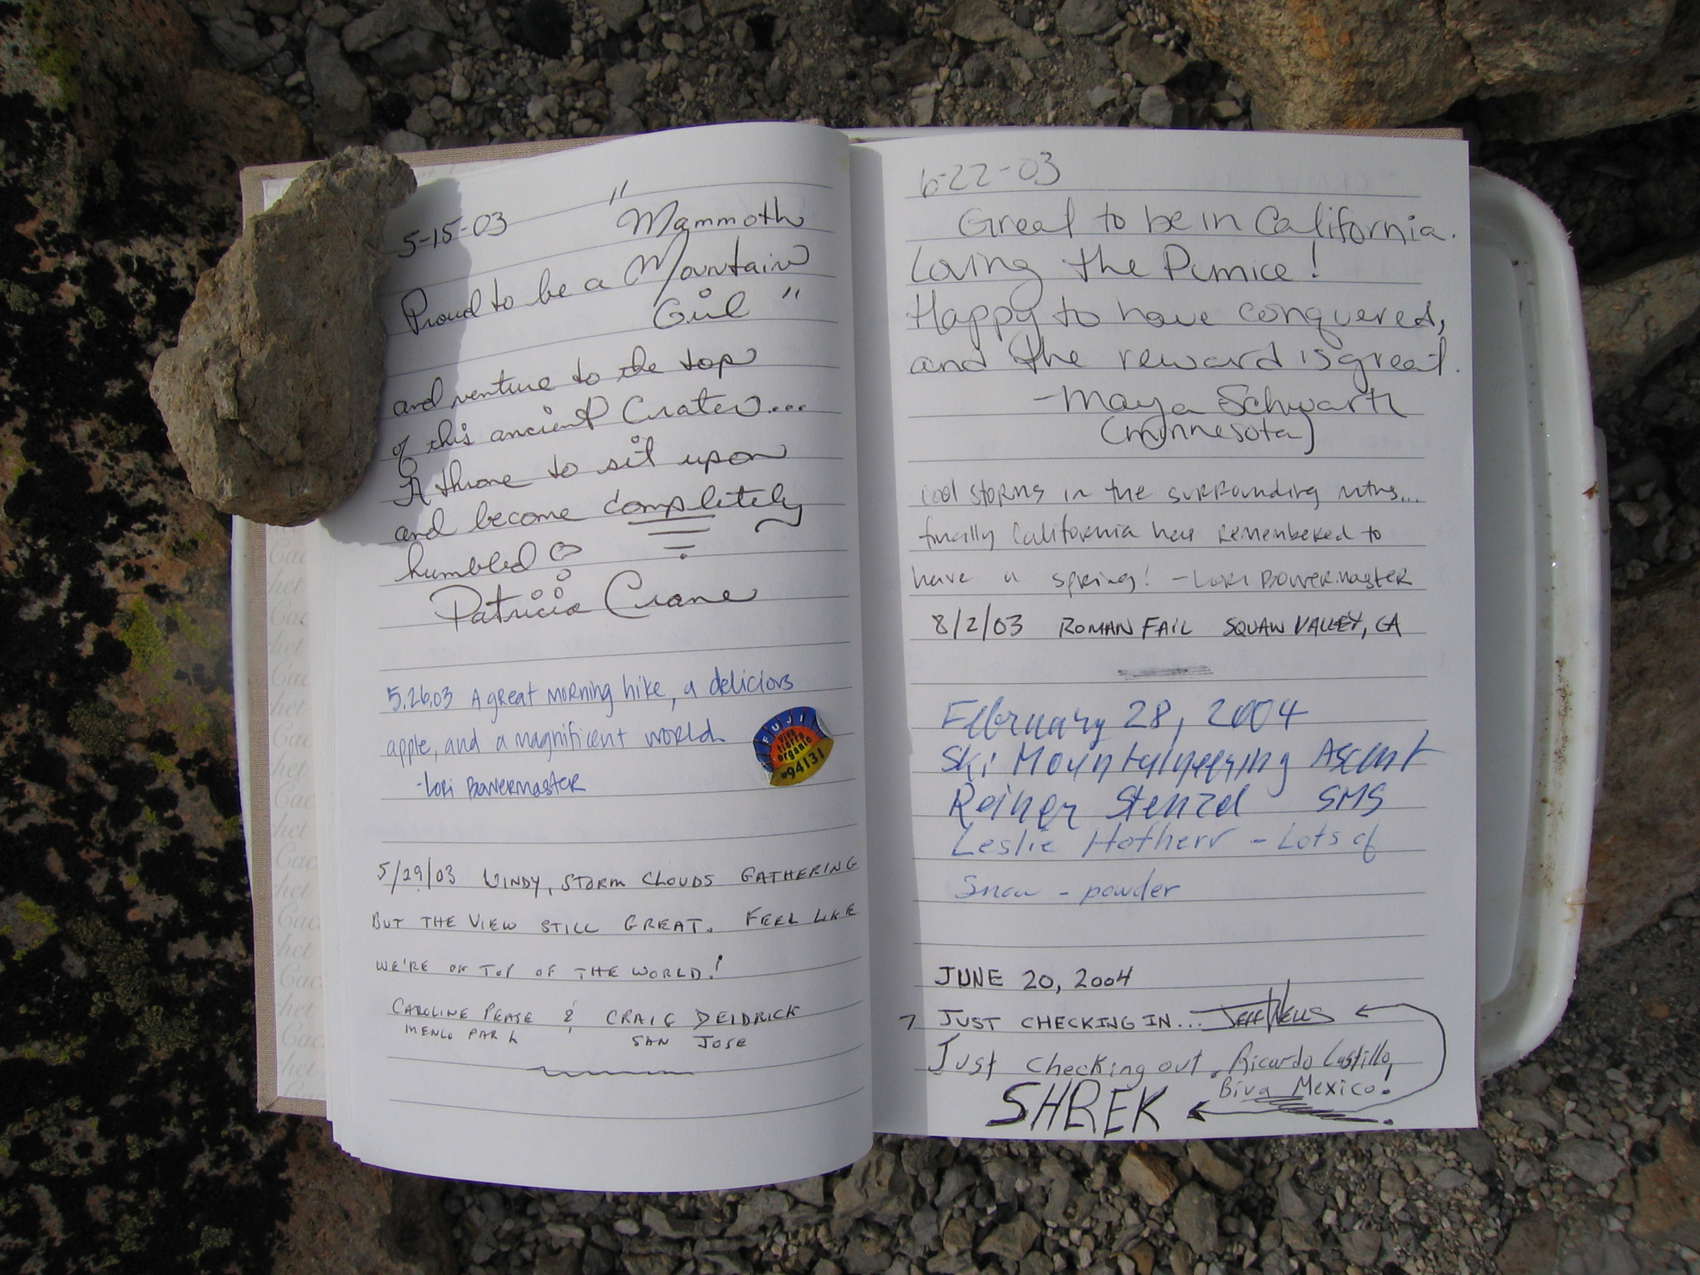 5-15-03 "Mammoth
Proud to be a Mountain
Girl"
and venture to the top
of this ancient Crater...
A throne to sit upon
and become completely
humbled
Patricia Crane
5.26.03 A great morning hike, a delicious
apple, and a magnificent world.
-Lori Bowermaster
FUJI
viva
tierra
organic
#94131
5/29/03 WINDY, STORM CLOUDS GATHERING
BUT THE VIEW STILL GREAT. FEEL LIKE
WE'RE ON TOP OF THE WORLD!
CAROLINE PEASE & CRAIG DEIDRICK
MENLO PARK SAN JOSE
Cachet
6-22-03
Great to be in California.
Loving the Pumice!
Happy to have conquered,
and the reward is great.
-Maya Schwartz
(Minnesota)
cool storms in the surrounding mtns...
finally California has remembered to
have a spring! -Lori Bowermaster
8/2/03 ROMAN FAIL SQUAW VALLEY, CA
February 28, 2004
Ski Mountaineering Ascent
Reiner Stenzel SMS
Leslie Hotherr - Lots of
Snow - powder
JUNE 20, 2004
JUST CHECKING IN... JEFF WELLS
Just checking out, Ricardo Castillo
Biva Mexico!
SHREK